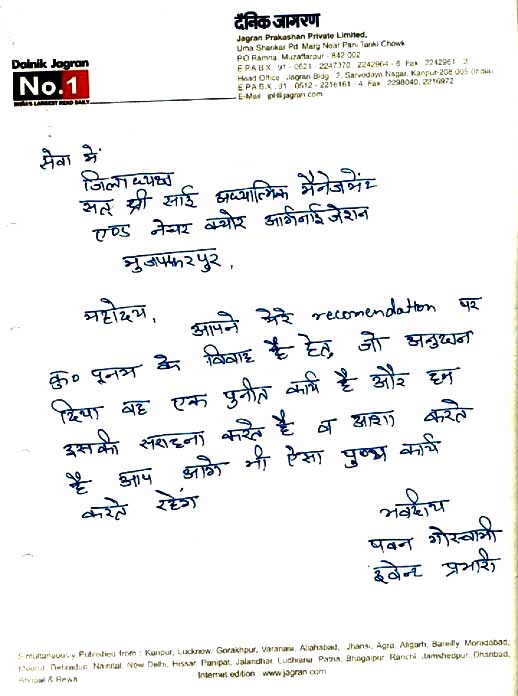 दैनिक जागरण
Jagran Prakashan Private Limited,
Uma Shankar Pd Marg Near Pani Tanki Chowk
P.O Ramna, Muzaffarpur - 842 002
E.P.A.B.X 91 - 0621 2247370 2242964 - 6 Fax 2242961 2
Head Office Jagran Bldg 2, Sarvodaya Nagar, Kanpur-208 005 (India)
E.P.A.B.X. 91 0512 - 2216161 - 4 Fax 2298040, 2216972
E-Mail jpl@jagran.com
Dainik Jagran
No.1
INDIA'S LARGEST READ DAILY
सेवा में
जिलाध्यक्ष
सत् श्री साई अध्यात्मिक मैनेजमेंट
एण्ड नेचर क्योर आर्गनाईजेशन
मुजफ्फरपुर,
महोदय,
आपने मेरे recomendation पर
कु० पूनम के विवाह है हेतु जो अनुदान
दिया वह एक पुनीत कार्य है और हम
इसकी सराहना करते है व आशा करते
है आप आगे भी ऐसा पुण्य कार्य
करते रहेंगे
भवदीय
पवन गोस्वामी
इवेन्ट प्रभारी
Simultaneously Published from : Kanpur, Lucknow, Gorakhpur, Varanasi, Allahabad, Jhansi, Agra, Aligarh, Bareilly, Moradabad,
Meerut, Dehradun, Nainital, New Delhi, Hissar, Panipat, Jalandhar, Ludhiana, Patna, Bhagalpur, Ranchi, Jamshedpur, Dhanbad,
Bhopal & Rewa
Internet edition www.jagran.com